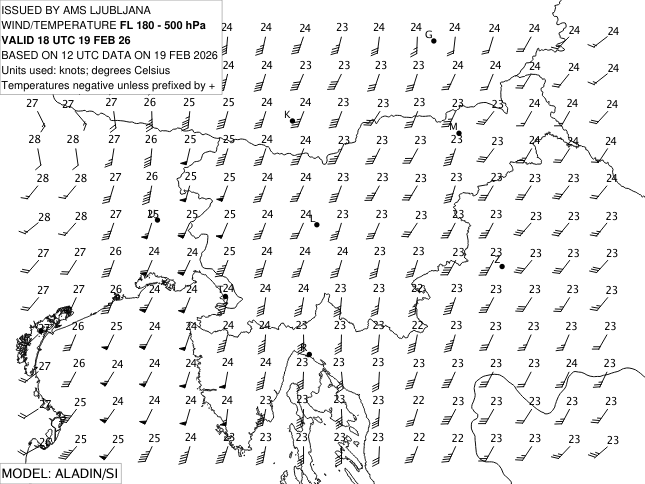 ISSUED BY AMS LJUBLJANA
WIND/TEMPERATURE FL 180 - 500 hPa
VALID 18 UTC 19 FEB 26
BASED ON 12 UTC DATA ON 19 FEB 2026
Units used: knots; degrees Celsius
Temperatures negative unless prefixed by +
24 24 24 23 24 24 24 24 24 24 24
G
24 24 24 23 23 23 24 24 24 24 24
27 27 27 26 25 25 24 24 23 23 23 23 23 24 24 24
K
M
28 28 27 26 25 25 24 24 23 23 23 23 23 24 24 24
28 28 27 26 25 25 24 24 23 23 23 23 23 23 23 24
28 28 27 25 25 25 24 24 23 23 23 23 23 23 23 23
L
27 27 26 24 24 25 24 24 24 23 23 23 23 23 23 23
Z
27 27 26 24 24 24 24 24 23 23 22 23 23 23 23 23
27 26 25 24 24 24 24 23 23 23 22 23 23 23 23 23
R
27 26 24 24 24 24 24 23 23 23 23 23 23 23 24 23
27 25 24 24 24 24 23 23 23 23 22 23 23 23 23 23
26 25 25 25 24 23 23 23 23 23 22 22 23 23 23 23
MODEL: ALADIN/SI